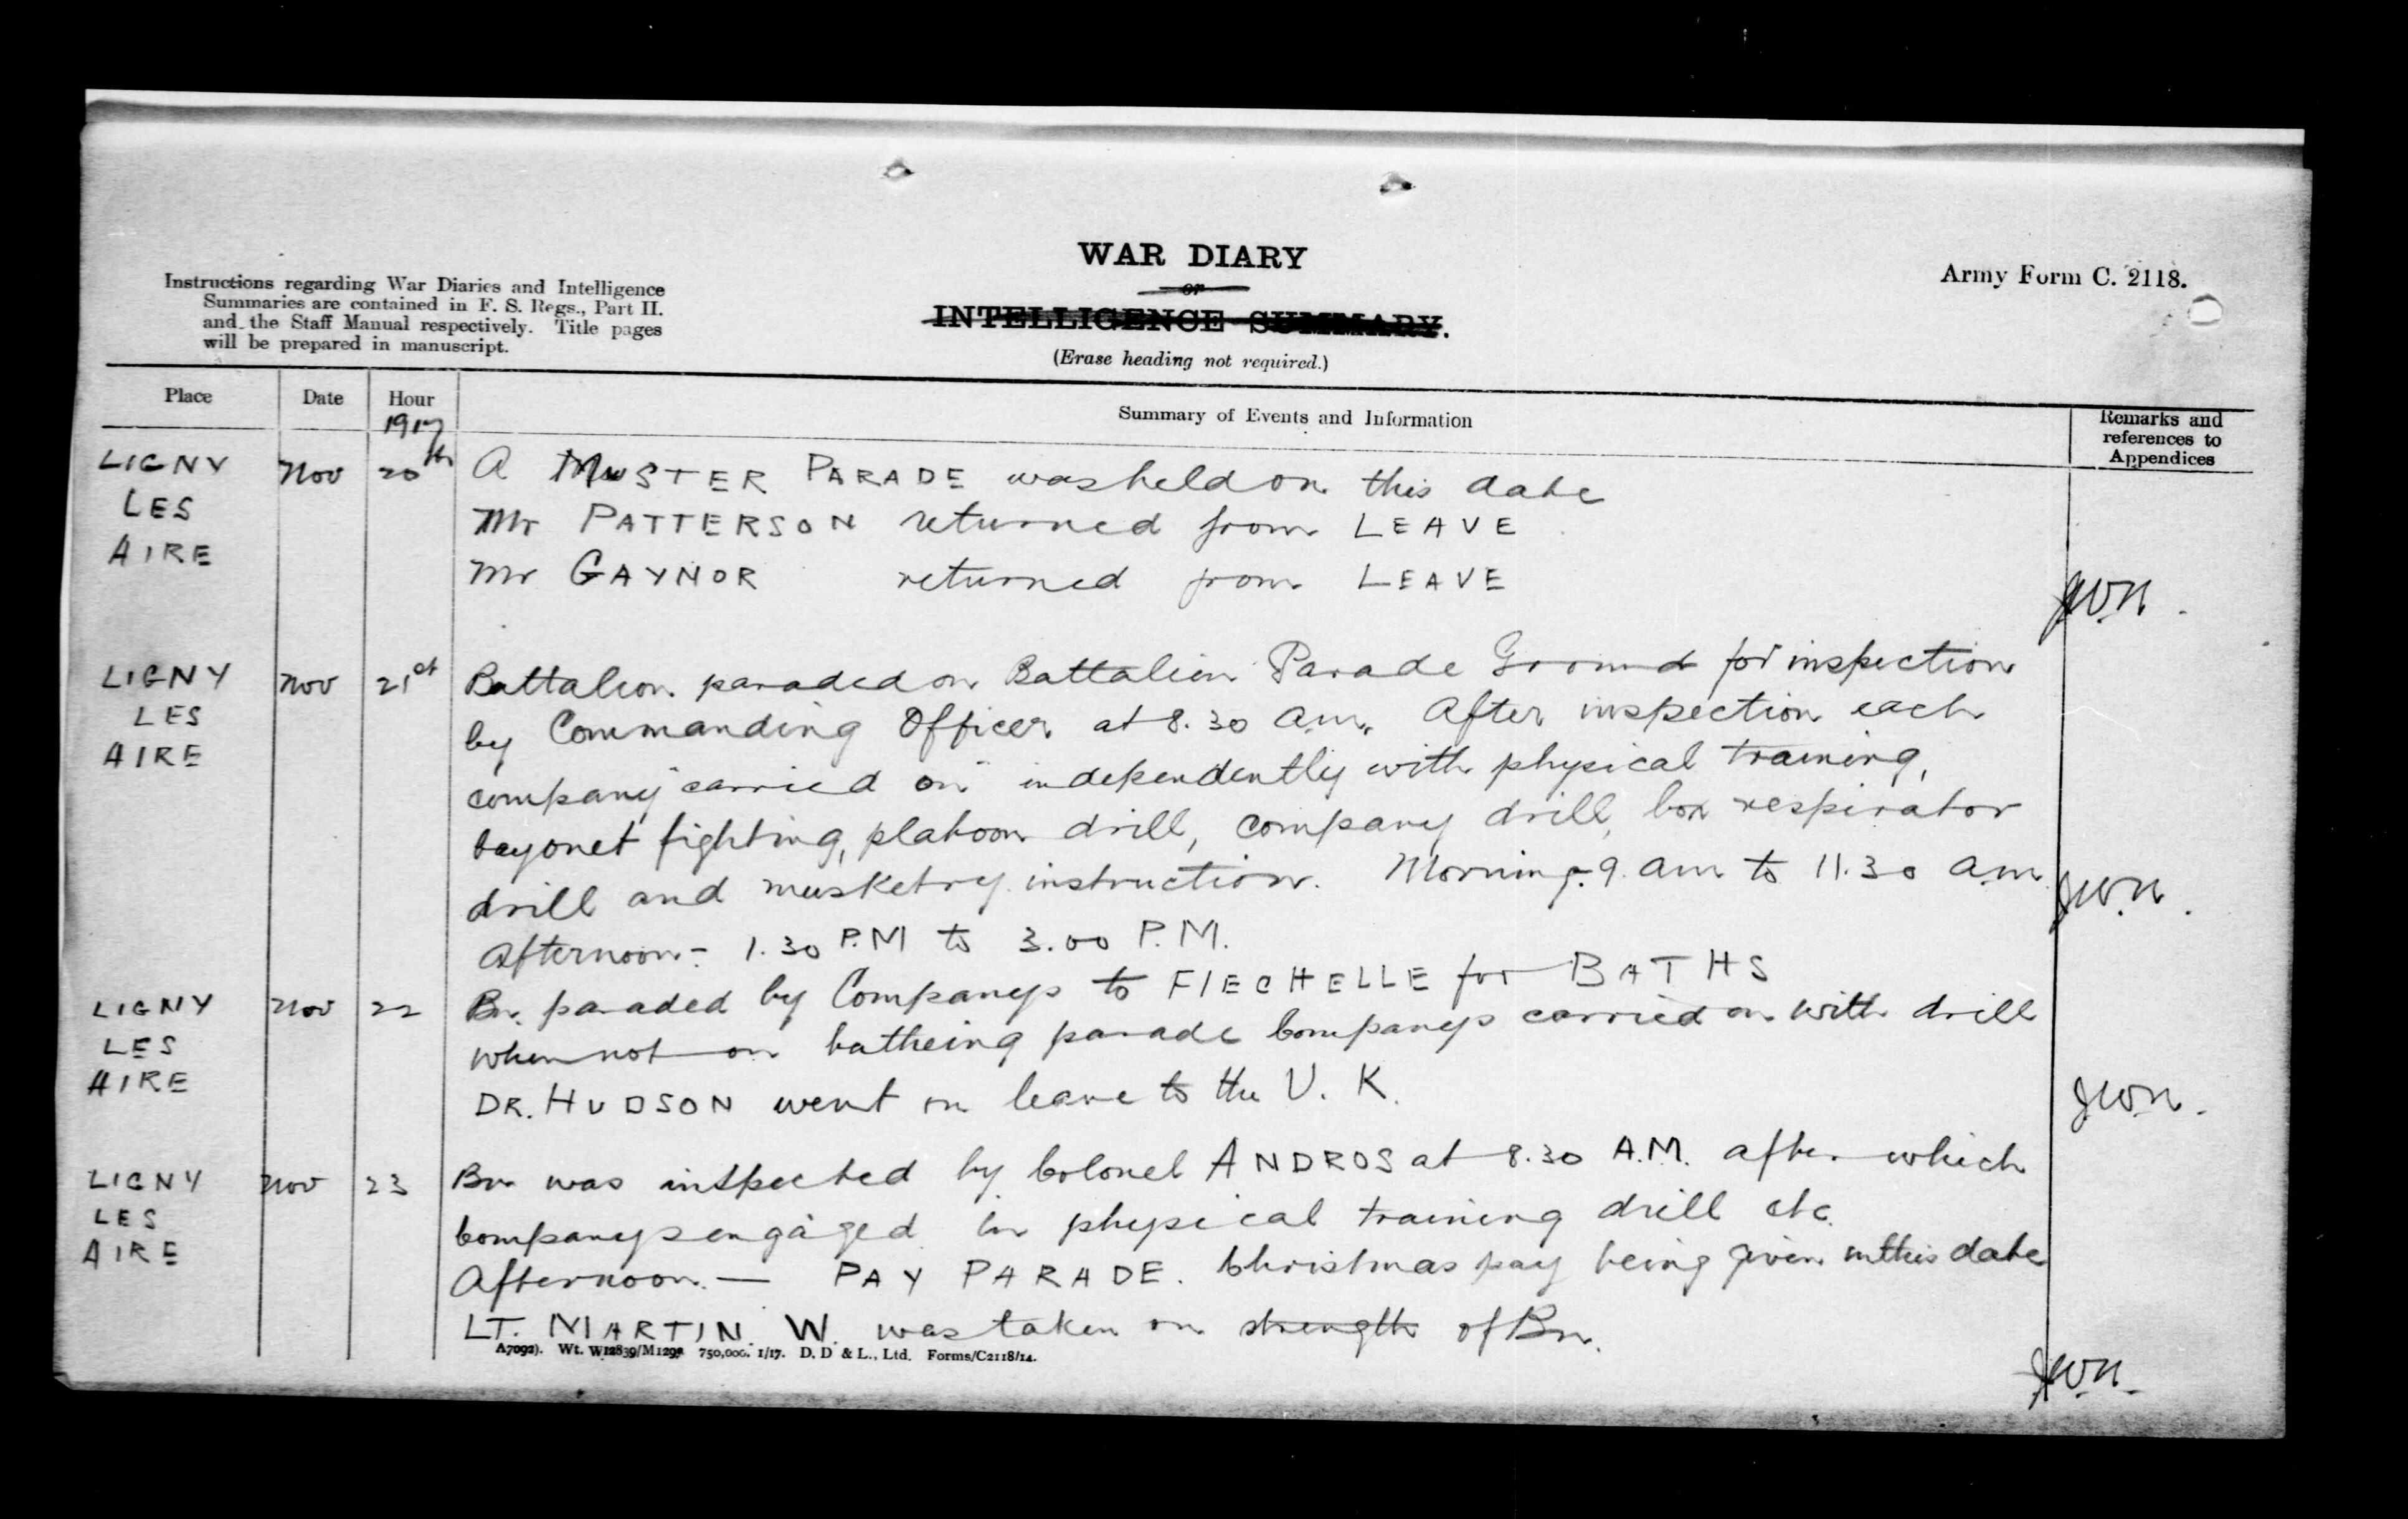 WAR DIARY
or
INTELLIGENCE SUMMARY.
(Erase heading not required.)
Army Form C. 2118.
Instructions regarding War Diaries and Intelligence
Summaries are contained in F. S. Regs., Part II.
and the Staff Manual respectively. Title pages
will be prepared in manuscript.
Place Date Hour Summary of Events and Information Remarks and references to Appendices
1917
LIGNY Nov 20th A MUSTER PARADE was held on this date
LES Mr PATTERSON returned from LEAVE
AIRE Mr GAYNOR returned from LEAVE
JWN.
LIGNY Nov 21st Battalion paraded on Battalion Parade Ground for inspection
LES by Commanding Officer at 8.30 am. After inspection each
AIRE company "carried on" independently with physical training,
bayonet fighting, platoon drill, company drill, box respirator
drill and musketry instruction. Morning- 9. am to 11.30 am
JW.N.
Afternoon- 1.30 P.M to 3.00 P.M.
LIGNY Nov 22 Bn. paraded by Companys to FIECHELLE for BATHS
LES when not on batheing parade Companys carried on with drill
AIRE DR. HUDSON went on leave to the U. K.
JWN.
LIGNY Nov 23 Bn was inspected by Colonel ANDROS at 8.30 A.M. after which
LES Companys engaged in physical training drill etc.
AIRE Afternoon. — PAY PARADE. Christmas pay being given on this date
LT. MARTIN. W. was taken on strength of Bn.
A7092). Wt. W12839/M1293 750,000. 1/17. D. D & L., Ltd. Forms/C2118/14.
JWN.